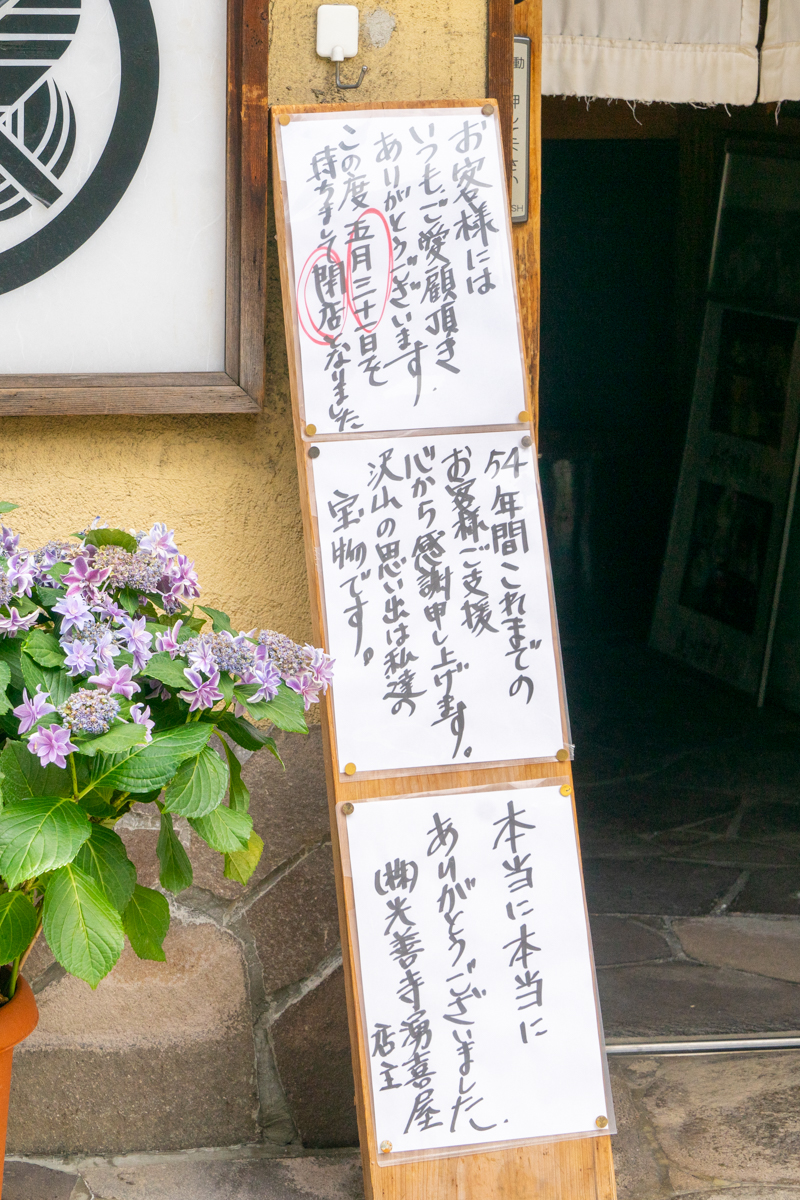 お客様には
いつもご愛顧頂き
ありがとうございます.
この度五月三十一日を
持ちまして閉店となりました
54年間これまでの
お客様ご支援
心から感謝申し上げます。
沢山の思い出は私達の
宝物です。
本当に本当に
ありがとうございました.
㈱光善寺湧喜屋
店主